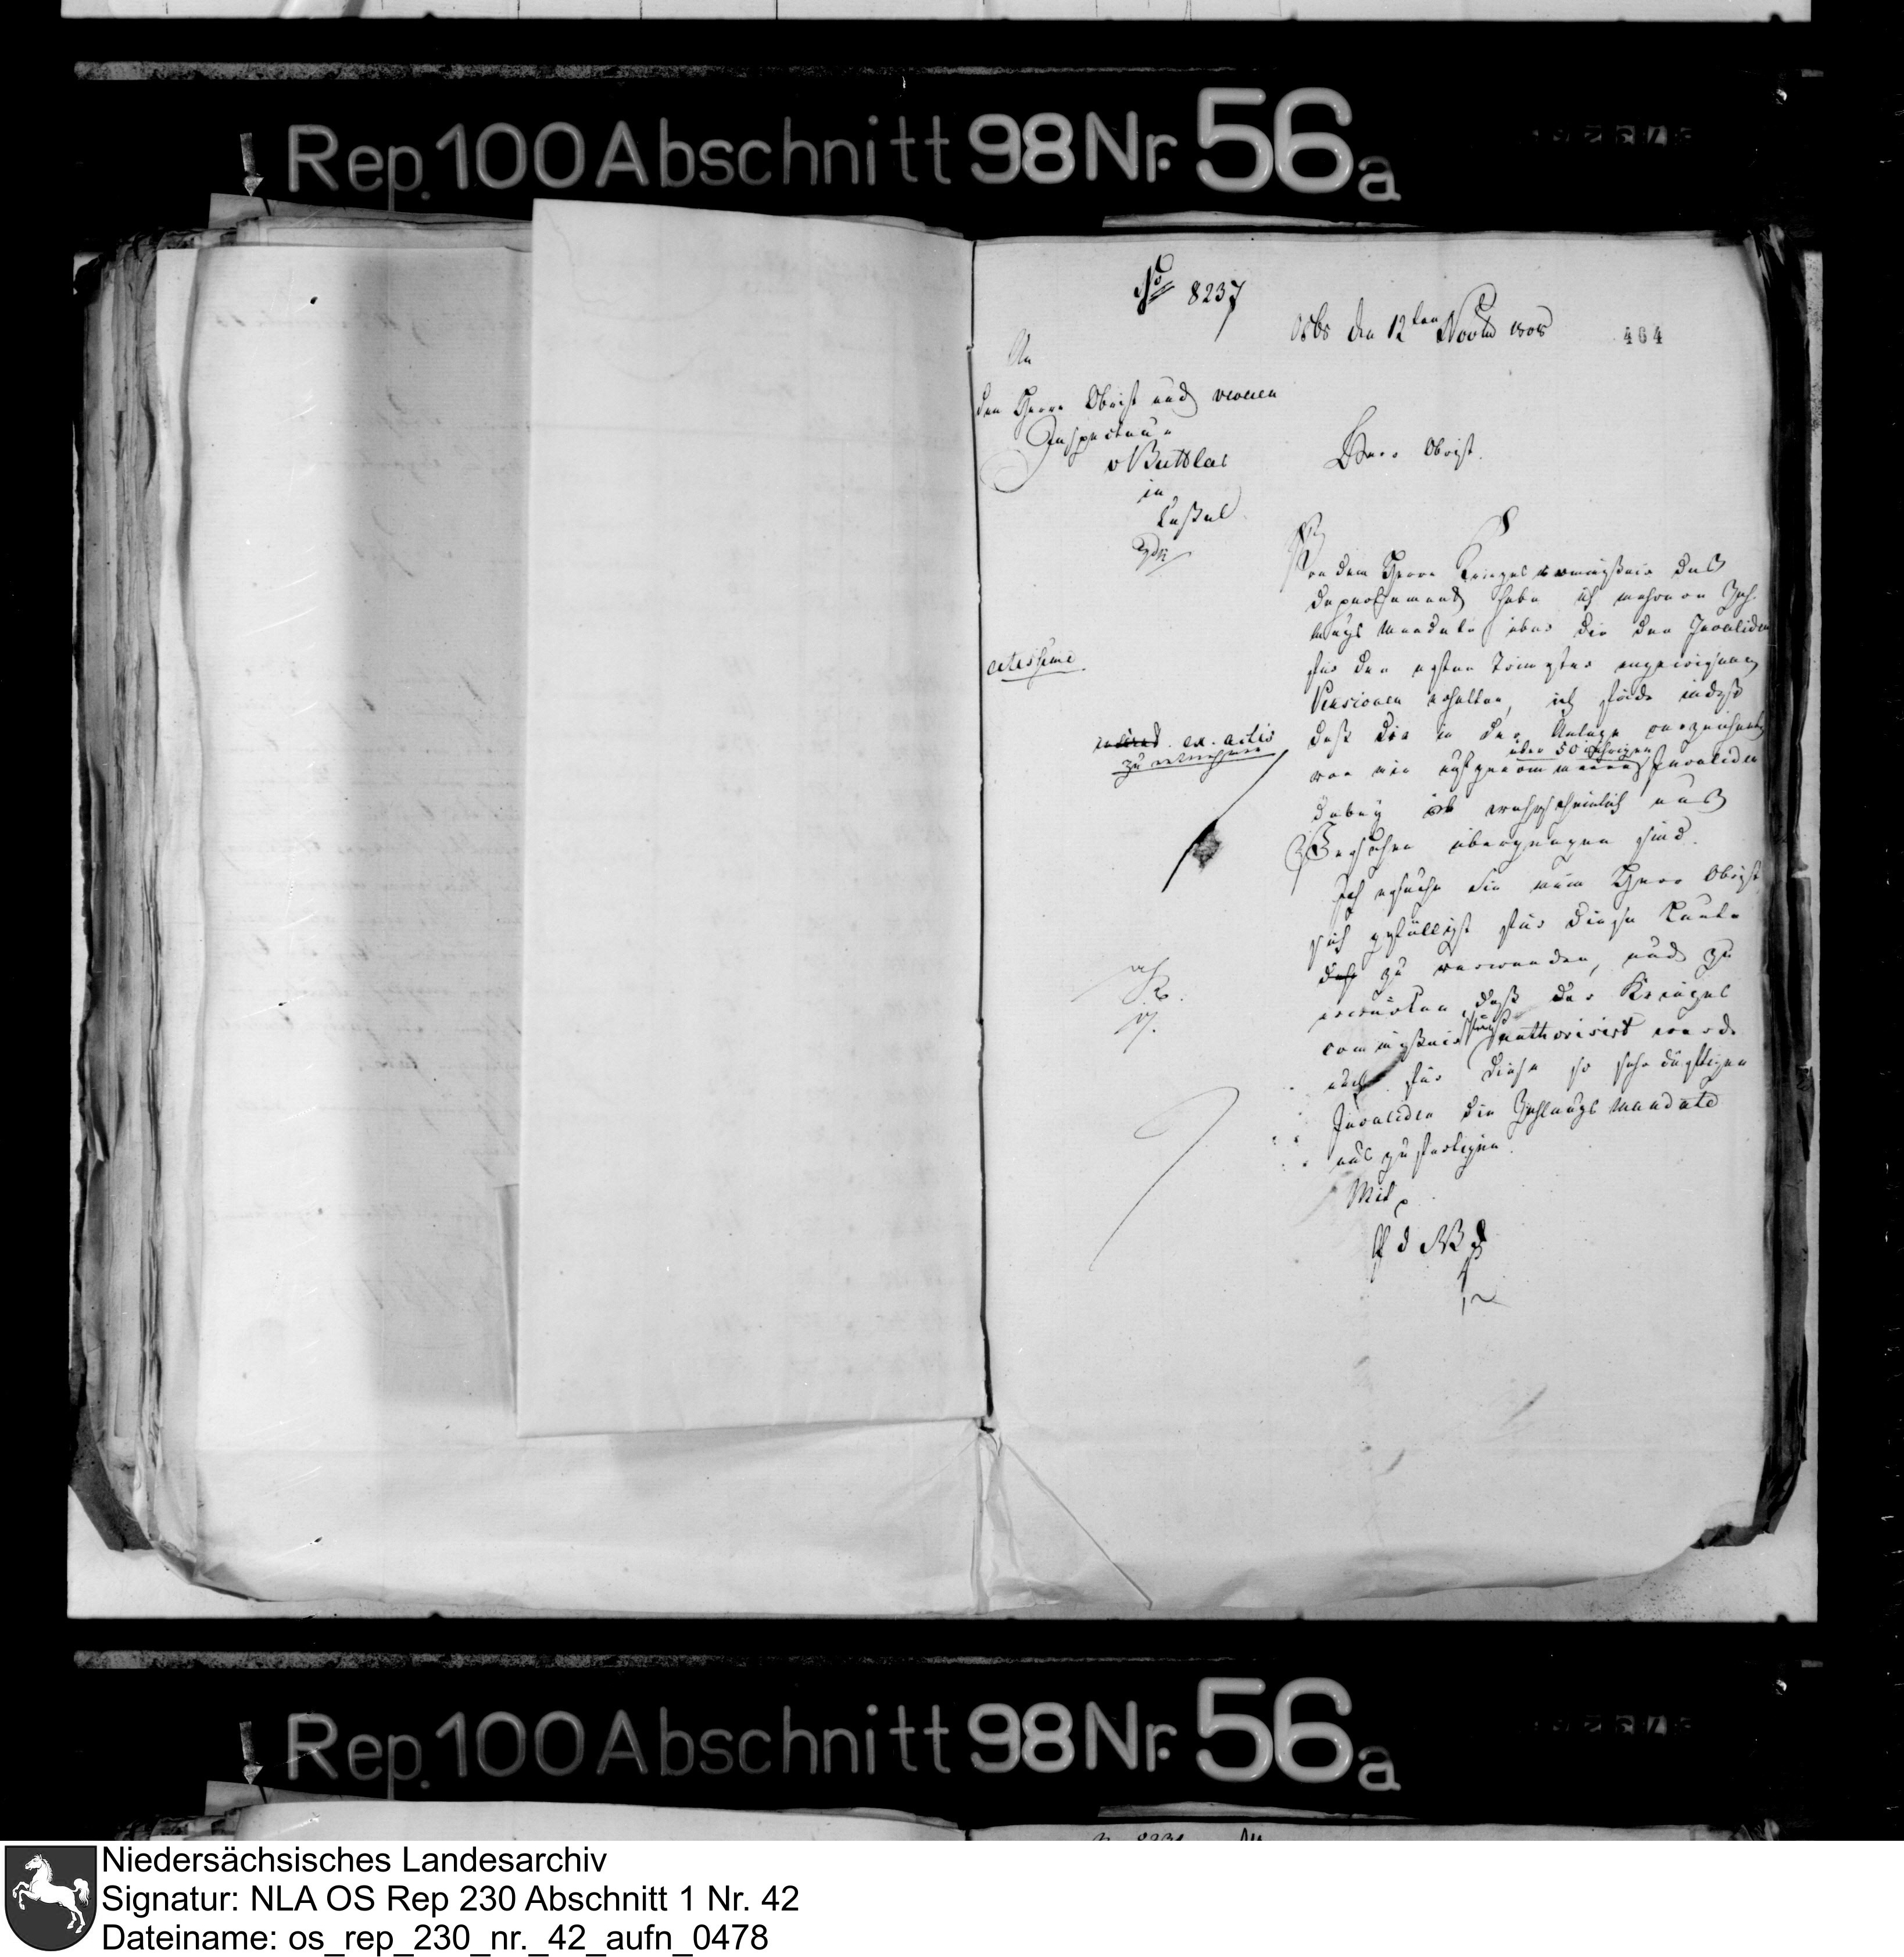 Rep. 100 Abschnitt 98 Nr. 56a
No 8237
Osbr den 12ten Novbr 1808
464
An
den Herrn Obrist und
Inspecteur
v Buttlar
in
Cassel
Herr Obrist.
Von dem Herrn Kriegs Commissair des
Departements habe ich mehrere Zah-
lungs Mandate über die den Invaliden
citissime
für den ersten Trimester angewiesenen
Pensionen erhalten, ich finde indeß
ex. actis
zu
daß die in der Anlage verzeichnete
über 50 jährigen
von mir aufgenommenen Invaliden
dabey wahrscheinlich aus
Versehen übergangen sind.
Ich ersuche Sie mein Herr Obrist
sich gefälligst für diese Leute
zu verwenden, und zu
daß der Kriegs
Commissair authorisirt werde
auch für diese so sehr dürftigen
Invaliden die Zahlungs Mandate
auszufertigen.
Mit
P d W D
Rep. 100 Abschnitt 98 Nr. 56a
Niedersächsisches Landesarchiv
Signatur: NLA OS Rep 230 Abschnitt 1 Nr. 42
Dateiname: os_rep_230_nr._42_aufn_0478